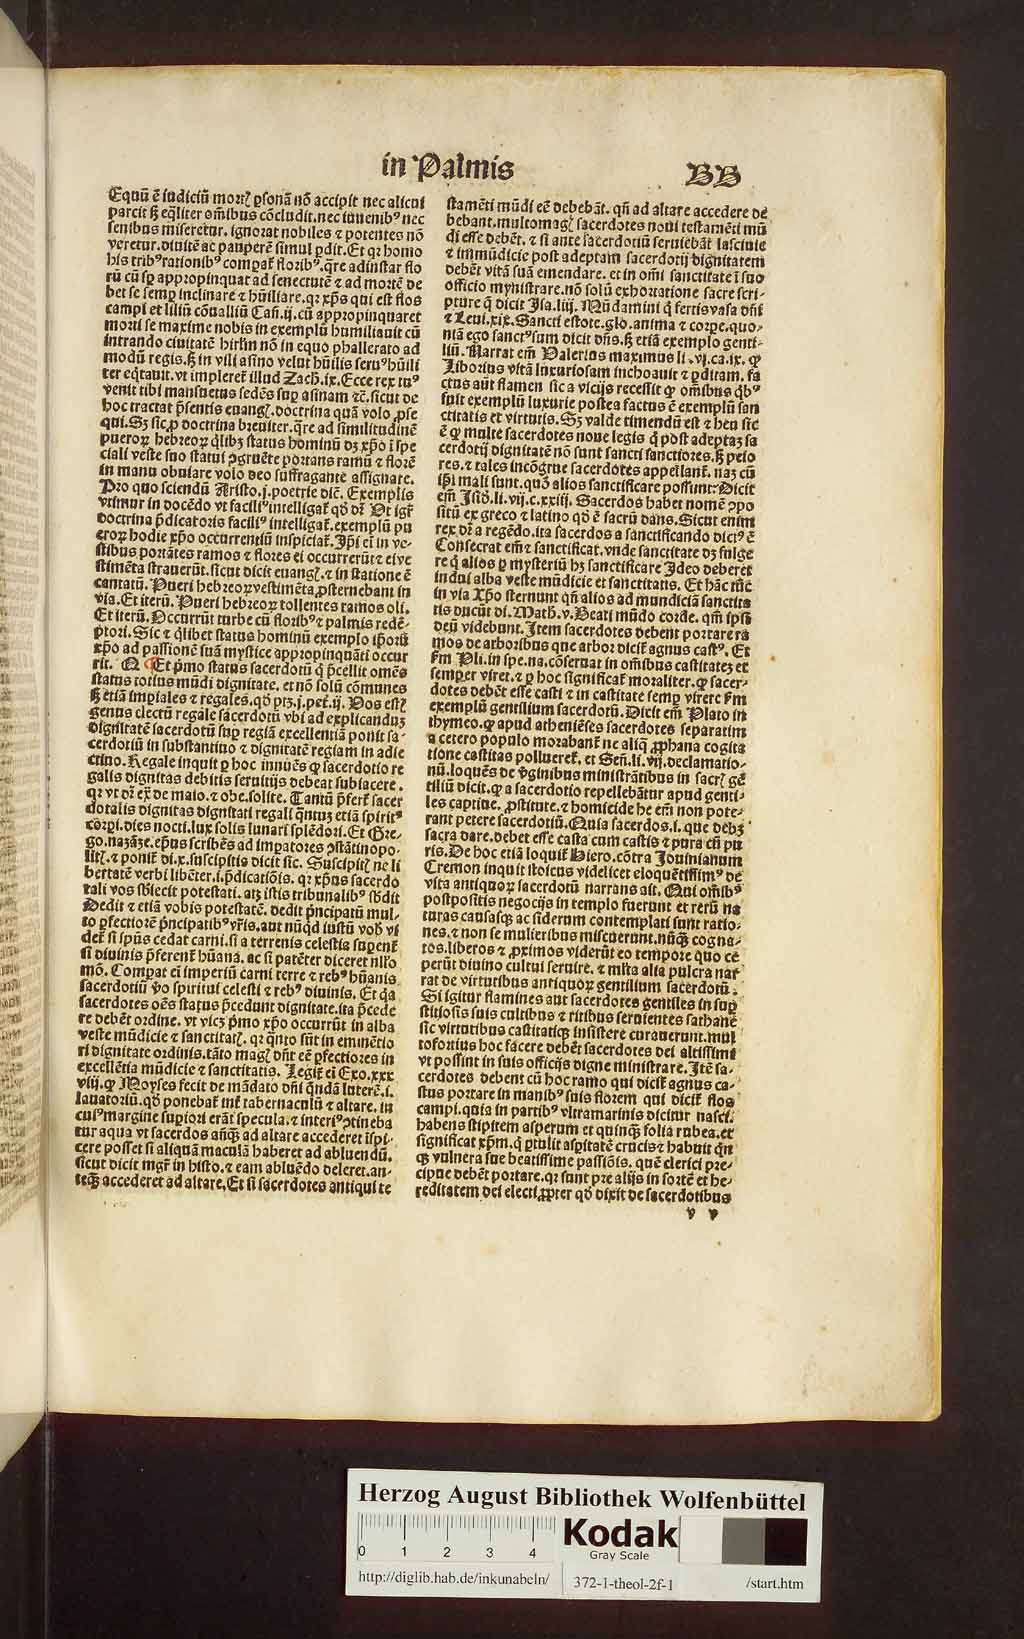 in Palmis
BB
Equū ē iudiciū mortꝭ ꝑsonā nō accipit nec alicui
parcit sꝫ eq̄liter om̄ibus cōcludit. nec iuuenibꝰ nec
senibus miseretur. ignorat nobiles ⁊ potentes nō
veretur. diuitē ac pauperē simul ꝑdit. Et qꝛ homo
his tribꝰ rationibꝰ compat̄ floribꝰ. q̄re adinstar flo
rū cū sꝑ appropinquat ad senectutē ⁊ ad mortē de
bet se semꝑ inclinare ⁊ hūiliare. qꝛ xp̄s qui est flos
campi et liliū cōualliū Cañ. ij. cū appropinquaret
morti se maxime nobis in exemplū humiliauit cū
intrando ciuitatē hirl̄m nō in equo phallerato ad
modū regis. sꝫ in vili asino velut hūilis seruꝰ hūili
ter eq̇tauit. vt impleret̄ illud Zach. ix. Ecce rex tuꝰ
venit tibi mansuetus sedēs suꝑ asinam ⁊ē. sicut de
hoc tractat p̄sentis euangꝭ. doctrina quā volo ꝓse
qui. Sꝫ sic ꝓ doctrina breuiter. q̄re ad similitudinē
pueroꝝ hebreoꝝ q̇libꝫ status hominū dꝫ xp̄o ī spe
ciali veste suo statui ↄgruēte portans ramū ⁊ florē
in manu obuiare volo deo suffragante assignare.
Pro quo sciendū Aristo. j. poetrie dic̄. Exemplis
vtimur in docēdo vt faciliꝰ intelligat̄ qḋ dr̄. Vt igr̄
doctrina p̄dicatoris faciliꝰ intelligat̄. exemplū pu
eroꝝ hodie xp̄o occurrentiū inspiciat̄. Ip̄i em̄ in ve-
stibus portātes ramos ⁊ flores ei occurrerūt ⁊ eiꝰ ve
stimēta strauerūt. sicut dicit euangꝭ. ⁊ in statione ē
cantatū. Pueri hebreoꝝ vestimēta ꝓsternebant in
via. Et iterū. Pueri hebreoꝝ tollentes ramos oli.
Et iterū. Occurrūt turbe cū floribꝰ ⁊ palmis redē-
ptori. Sic ⁊ q̇libet status hominū exemplo ip̄oꝝ
xp̄o ad passionē suā mystice appropinquāti occur
rit. Q ¶ Et p̄mo status sacerdotū q̇ p̄cellit om̄es
status totius mūdi dignitate. et nō solū cōmunes
sꝫ etiā imꝑiales ⁊ regales. qḋ ptꝫ. j. pet̄. ij. Vos estꝭ
genus electū regale sacerdotū vbi ad explicandaꝫ
dignitatē sacerdotū suꝑ regiā excellentiā ponit sa-
cerdotiū in substantiuo ⁊ dignitatē regiam in adie
ctiuo. Regale inquit ꝑ hoc innuēs ꝙ sacerdotio re
galis dignitas debitis seruitijs debeat subiacere.
qꝛ vt dr̄ ex̄ de maio. ⁊ obe. solite. Tantū p̄fert̄ sacer
dotalis dignitas dignitati regali q̇ntuꝫ etiā spiritꝰ
corꝑi. dies nocti. lux solis lunari splēdori. Et Gre-
go. nazāze. ep̄us scribēs ad imꝑatores ↄstātinopo-
litꝭ. ⁊ ponit̄ di. x. suscipitis dicit sic. Suscipitꝭ ne li
bertatē verbi libēter. i. p̄dicatiōis. qꝛ xp̄us sacerdo
tali vos sb̄iecit potestati. atꝫ istis tribunalibꝰ sb̄dit
Dedit ⁊ etiā vobis potestatē. dedit p̄ncipatū mul-
to ꝑfectiorē p̄ncipatibꝰ vr̄is. aut nūqḋ iustū vob̄ vi
det̄ si ip̄us cedat carni. si a terrenis celestia suꝑent̄
si diuinis p̄ferent̄ hūana. ac si patēter diceret nllo
mō. Compat̄ em̄ imperiū carni terre ⁊ rebꝰ hūanis
sacerdotiū ꝟo spiritui celesti ⁊ rebꝰ diuinis. Et q̇a
sacerdotes oēs status p̄cedunt dignitate. ita p̄cede
re debēt ordine. vt vicꝫ p̄mo xp̄o occurrūt in alba
veste mūdicie ⁊ sanctitatꝭ. qꝛ q̇nto sūt in eminētio
ri dignitate ordinis. tāto magꝭ dn̄t eē ꝑfectiores in
excellētia mūdicie ⁊ sanctitatis. Legit̄ em̄ Exo. xxx
viij. ꝙ Moyses fecit de mādato dn̄i q̄ndā luterē. i.
lauatoriū. qḋ ponebat̄ int̄ tabernaculū ⁊ altare. in
cuiꝰ margine suꝑiori erāt specula. ⁊ interiꝰ ↄtineba
tur aqua vt sacerdos an̄qꝫ ad altare accederet īspi-
cere posset si aliquā maculā haberet ad abluendū.
sicut dicit mgr̄ in histo. ⁊ eam abluēdo deleret. an-
teqꝫ accederet ad altare. Et si sacerdotes antiqui te
stamēti mūdi eē debebāt. qn̄ ad altare accedere de
bebant. multomagꝭ sacerdotes noui testamēti mū
di esse debēt. ⁊ si ante sacerdotiū seruiebāt lasciuie
⁊ immūdicie post adeptam sacerdotij dignitatem
debēt vitā suā emendare. et in om̄i sanctitate ī suo
officio mynistrare. nō solū exhortatione sacre scri-
pture q̄ dicit Isa. liij. Mūdamini q̇ fertis vasa dn̄i
⁊ Leui. xix. Sancti estote. glo. anima ⁊ corꝑe. quo-
niā ego sanctꝰ sum dicit dn̄s. sꝫ etiā exemplo genti-
liū. Narrat em̄ Valerius maximus li. vj. ca. ix. ꝙ
Liborius vitā luxuriosam inchoauit ⁊ ꝑditam. fa
ctus aūt flamen sic a vicijs recessit ꝙ om̄ibus q̇bꝰ
fuit exemplū luxurie postea factus ē exemplū san
ctitatis et virtutis. Sꝫ valde timendū est ⁊ heu sic
ē ꝙ multe sacerdotes noue legis q̇ post adeptaꝫ sa
cerdotij dignitatē nō sunt sancti sanctiores. sꝫ peio
res. ⁊ tales incōgrue sacerdotes appellant̄. naꝫ cū
ip̄i mali sunt. quō alios sanctificare possunt. Dicit
em̄ Isid̄. li. vij. c. xxiij. Sacerdos habet nomē ↄpo
sitū ex greco ⁊ latino qḋ ē sacrū dans. Sicut enim
rex dr̄ a regēdo. ita sacerdos a sanctificando dictꝰ ē
Consecrat em̄ ⁊ sanctificat. vnde sanctitate dꝫ fulge
re q̇ alios ꝑ mysteriū hꝫ sanctificare Ideo deberet
indui alba veste mūdicie et sanctitatis. Et hāc tūc
in via Xp̄o sternunt qn̄ alios ad mundiciā sanctita
tis ducūt di. Math. v. Beati mūdo corde. qm̄ ipsi
deū videbunt. Item sacerdotes debent portare ra
mos de arboribus que arbor dicit̄ agnus castꝰ. Et
ẜm Pli. in spe. na. cōseruat in om̄ibus castitateꝫ et
semper viret. ⁊ ꝑ hoc significat̄ moraliter. ꝙ sacer-
dotes debēt esse casti ⁊ in castitate semꝑ virere ẜm
exemplū gentilium sacerdotū. Dicit em̄ Plato in
thymeo. ꝙ apud atheniēses sacerdotes separatim
a cetero populo morabant̄ ne aliq̄ ꝓphana cogita
tione castitas pollueret̄. et Señ. li. vij. declamatio-
nū. loquēs de ꝟginibus ministrātibus in sacrꝭ gē
tiliū dicit. ꝙ a sacerdotio repellebātur apud genti-
les captiue. ꝓstitute. ⁊ homicide he em̄ non pote-
rant petere sacerdotiū. Quia sacerdos. i. que debꝫ
sacra dare. debet esse casta cum castis ⁊ pura cū pu
ris. De hoc etiā loquit̄ Hiero. cōtra Jouinianum
Cremon inquit stoicus videlicet eloquētissimꝰ de
vita antiquoꝝ sacerdotū narrans ait. Qui om̄ibꝰ
postpositis negocijs in templo fuerunt et rerū na
turas causasqꝫ ac siderum contemplati sunt ratio-
nes. ⁊ non se mulieribus miscuerunt. nūqꝫ cogna-
tos. liberos ⁊ ꝓximos viderūt eo tempore quo ce
perūt diuino cultui seruire. ⁊ mlta alia pulcra nar
rat de virtutibus antiquoꝝ gentilium sacerdotū.
Si igitur flamines aut sacerdotes gentiles in suꝑ
stitiosis suis cultibus ⁊ ritibus seruientes sathane
sic virtutibus castitatiqꝫ insistere curauerunt. mul
tofortius hoc facere debēt sacerdotes dei altissimi
vt possint in suis officijs digne ministrare. Itē sa-
cerdotes debent cū hoc ramo qui dicit̄ agnus ca-
stus portare in manibꝰ suis florem qui dicit̄ flos
campi. quia in partibꝰ vltramarinis dicitur nasci.
habens stipitem asperum et quinqꝫ folia rubea. et
significat xp̄m. q̇ ꝑtulit asꝑitatē crucis ⁊ habuit q̇n
qꝫ vulnera sue beatissime passiōis. quē clerici pre-
cipue debēt portare. qꝛ sunt pre alijs in sortē et he-
reditatem dei electi. ꝓpter qḋ dixit de sacerdotibus
v v
Herzog August Bibliothek Wolfenbüttel
0 1 2 3 4
Kodak
Gray Scale
http://diglib.hab.de/inkunabeln/
372-1-theol-2f-1
/start.htm